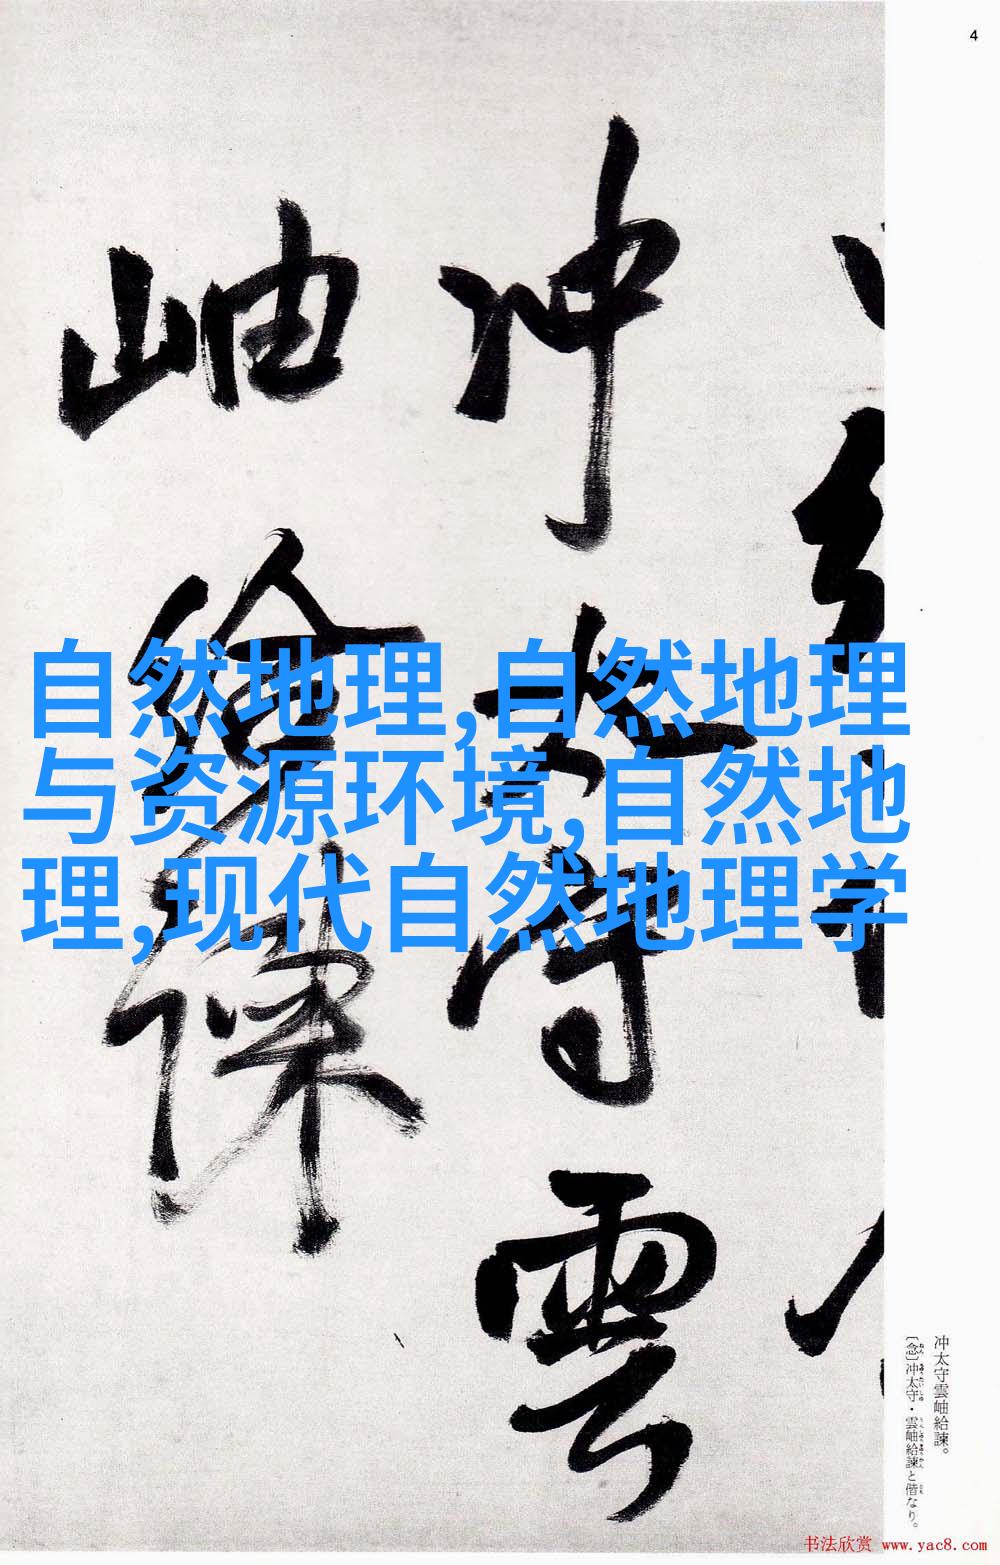 4
冲太守雲
岫給諫
自然地理,自然地理
与资源环境,自然地
理,现代自然地理学
冲太守雲岫給諫。
〔念〕冲太守・雲岫給諫と偕なり。
书法欣赏 www.yac8.com